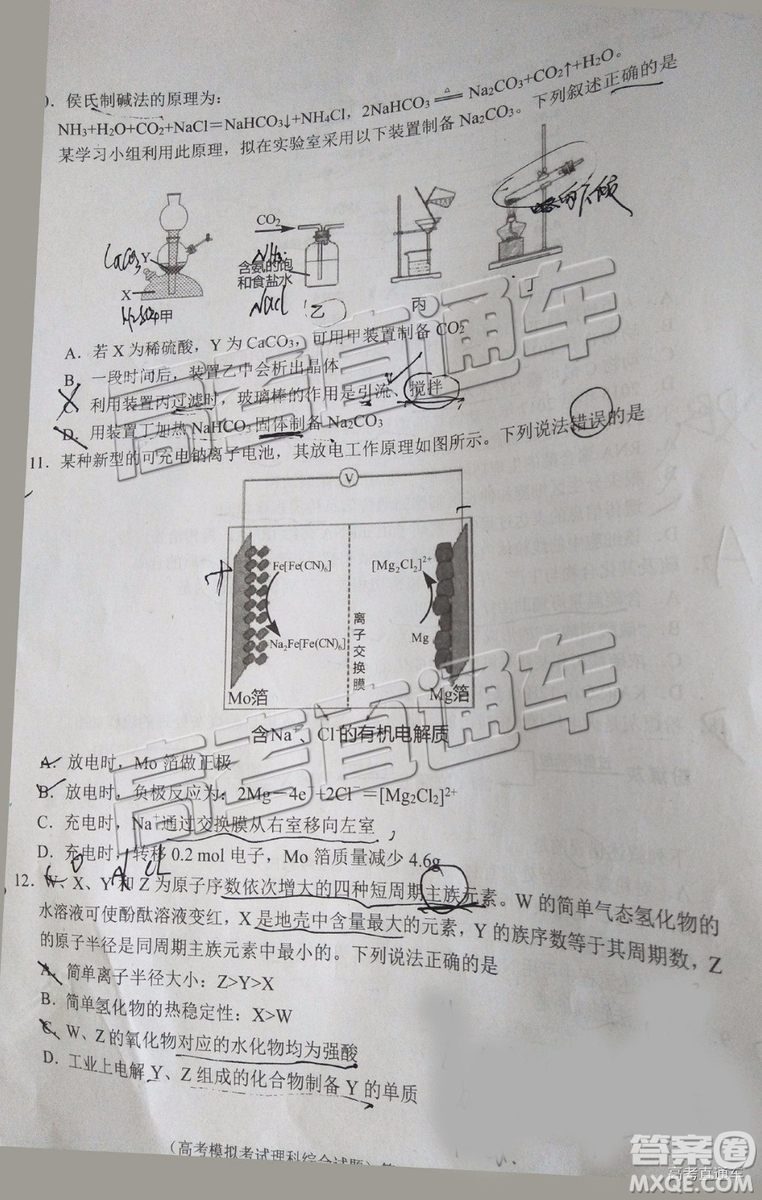 侯氏制碱法的原理为：
NH3+H2O+CO2+NaCl＝NaHCO3↓+NH4Cl，2NaHCO3 ═△═ Na2CO3+CO2↑+H2O。
某学习小组利用此原理，拟在实验室采用以下装置制备 Na2CO3。下列叙述正确的是
CO2
CaCO3 Y
NH3
X
H2SO4 甲
含氨的饱
和食盐水
NaCl
乙
丙
丁
A．若 X 为稀硫酸，Y 为 CaCO3，可用甲装置制备 CO2
B．一段时间后，装置乙中会析出晶体
C．利用装置丙过滤时，玻璃棒的作用是引流、搅拌
D．用装置丁加热 NaHCO3 固体制备 Na2CO3
11．某种新型的可充电钠离子电池，其放电工作原理如图所示。下列说法错误的是
V
+
−
Fe[Fe(CN)6]
[Mg2Cl2]2+
离子交换膜
Na2Fe[Fe(CN)6]
Mg
Mo箔
Mg箔
含Na+、Cl-的有机电解质
A．放电时，Mo 箔做正极
B．放电时，负极反应为：2Mg－4e-+2Cl-＝[Mg2Cl2]2+
C．充电时，Na+通过交换膜从右室移向左室
D．充电时，转移 0.2 mol 电子，Mo 箔质量减少 4.6g
O Al Cl
12．W、X、Y 和 Z 为原子序数依次增大的四种短周期主族元素。W 的简单气态氢化物的
水溶液可使酚酞溶液变红，X 是地壳中含量最大的元素，Y 的族序数等于其周期数，Z
的原子半径是同周期主族元素中最小的。下列说法正确的是
A．简单离子半径大小：Z>Y>X
B．简单氢化物的热稳定性：X>W
C．W、Z 的氧化物对应的水化物均为强酸
D．工业上电解 Y、Z 组成的化合物制备 Y 的单质
（高考模拟考试理科综合试题）第
高考直通车
高考直通车
答案圈
高考直通车
MXQE.COM